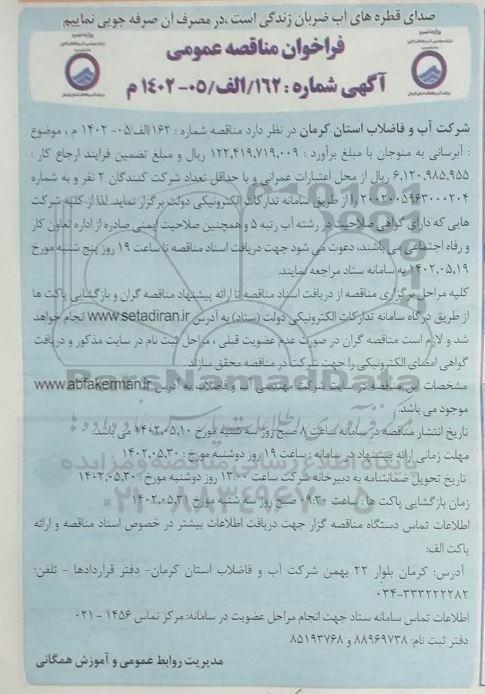 صدای قطره های آب ضربان زندگی است ،در مصرف آن صرفه جویی نماییم
فراخوان مناقصه عمومی
آگهی شماره : ۱۶۲/الف/۰۵-۱۴۰۲ م
شرکت آب و فاضلاب استان کرمان در نظر دارد مناقصه شماره : ۱۶۲/الف/۰۵-۱۴۰۲ م ، موضوع
: آبرسانی به منوجان با مبلغ برآورد : ۱۲۲,۴۱۹,۷۱۹,۰۰۹ ریال و مبلغ تضمین فرایند ارجاع کار :
۶,۱۲۰,۹۸۵,۹۵۵ ریال از محل اعتبارات عمرانی و با حداقل تعداد شرکت کنندگان ۲ نفر و به شماره
۲۰۰۲۰۰۵۹۶۳۰۰۰۲۰۴ را از طریق سامانه تدارکات الکترونیکی دولت برگزار نماید. لذا از کلیه شرکت
هایی که دارای گواهی صلاحیت در رشته آب رتبه ۵ و همچنین صلاحیت ایمنی صادره از اداره تعاون کار
و رفاه اجتماعی می باشند، دعوت می شود جهت دریافت اسناد مناقصه تا ساعت ۱۹ روز پنج شنبه مورخ
۱۴۰۲,۰۵,۱۹ به سامانه ستاد مراجعه نمایند.
کلیه مراحل برگزاری مناقصه از دریافت اسناد مناقصه تا ارائه پیشنهاد مناقصه گران و بازگشایی پاکت ها
از طریق درگاه سامانه تدارکات الکترونیکی دولت (ستاد) به آدرس www.setadiran.ir انجام خواهد
شد و لازم است مناقصه گران در صورت عدم عضویت قبلی ، مراحل ثبت نام در سایت مذکور و دریافت
گواهی امضای الکترونیکی را جهت شرکت در مناقصه محقق سازند.
مشخصات این مناقصه در سایت شرکت مهندسی آب و فاضلاب به آدرس www.abfakerman.ir
موجود می باشد.
تاریخ انتشار مناقصه در سامانه ساعت ۸ صبح روز سه شنبه مورخ ۱۴۰۲,۰۵,۱۰ می باشد.
مهلت زمانی ارائه پیشنهاد در سامانه : ساعت ۱۹ روز دوشنبه مورخ : ۱۴۰۲,۰۵,۳۰
تاریخ تحویل ضمانتنامه به دبیرخانه شرکت ساعت ۱۳:۰۰ روز دوشنبه مورخ : ۱۴۰۲,۰۵,۳۰
زمان بازگشایی پاکت ها: ساعت ۹:۳۰ صبح روز سه شنبه مورخ ۱۴۰۲,۰۵,۳۱
اطلاعات تماس دستگاه مناقصه گزار جهت دریافت اطلاعات بیشتر در خصوص اسناد مناقصه و ارائه
پاکت الف:
آدرس: کرمان بلوار ۲۲ بهمن شرکت آب و فاضلاب استان کرمان- دفتر قراردادها - تلفن:
۰۳۴-۳۳۲۲۲۲۸۲
اطلاعات تماس سامانه ستاد جهت انجام مراحل عضویت در سامانه: مرکز تماس ۱۴۵۶ - ۰۲۱
دفتر ثبت نام: ۸۸۹۶۹۷۳۸ و ۸۵۱۹۳۷۶۸
مدیریت روابط عمومی و آموزش همگانی
ParsNamadData
پایگاه اطلاع رسانی مناقصه و مزایده
۰۲۱-۸۸۳۴۹۶۷۰-۵